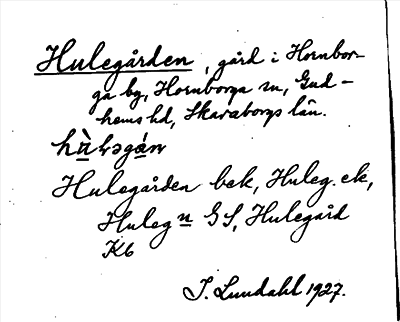 Hulegården, gård i Hornbor-
ga by, Hornborga sn, Gud-
hems hd, Skaraborgs län.
Hulegården bek, Huleg. ek,
Huleg n GS, Hulegård
Kb
I. Lundahl 1927.